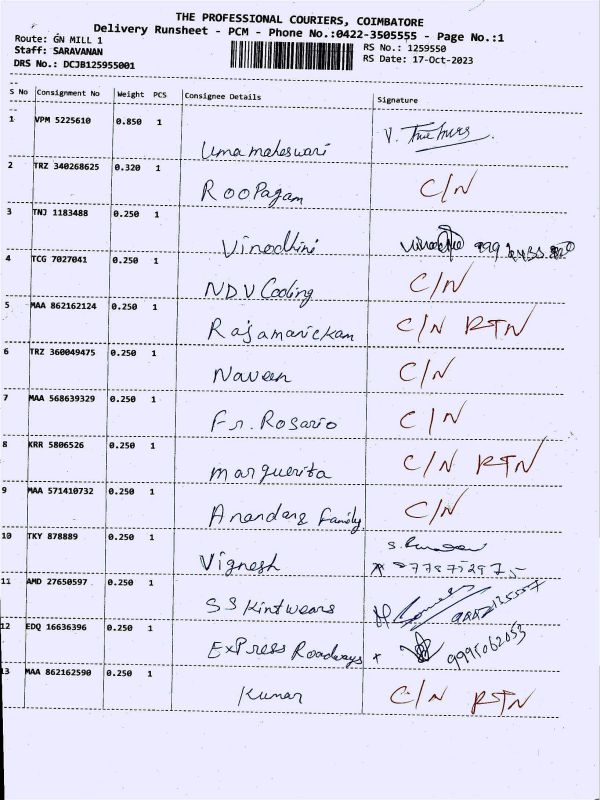 THE PROFESSIONAL COURIERS, COIMBATORE
Delivery Runsheet - PCM - Phone No.:0422-3505555 - Page No.:1
Route: GN MILL 1 RS No.: 1259550
Staff: SARAVANAN RS Date: 17-Oct-2023
DRS No.: DCJB125955001
S No Consignment No Weight PCS Consignee Details Signature
1 VPM 5225610 0.850 1
Uma maheswari V.
2 TRZ 340268625 0.320 1
RooPagam C/N
3 TNJ 1183488 0.250 1
Vinodhini
4 TCG 7027041 0.250 1
NDV Cooling C/N
5 MAA 862162124 0.250 1
Rajamanickam C/N RTN
6 TRZ 360049475 0.250 1
Naveen C/N
7 MAA 568639329 0.250 1
Fr. Rosario C/N
8 KRR 5806526 0.250 1
marguerita C/N RTN
9 MAA 571410732 0.250 1
Anandang Family C/N
10 TKY 878889 0.250 1
Vignesh
11 AMD 27650597 0.250 1
SS Kintwears
12 EDQ 16636396 0.250 1
ExPress Roadways 9995062053
13 MAA 862162590 0.250 1
Kumar C/N RTN